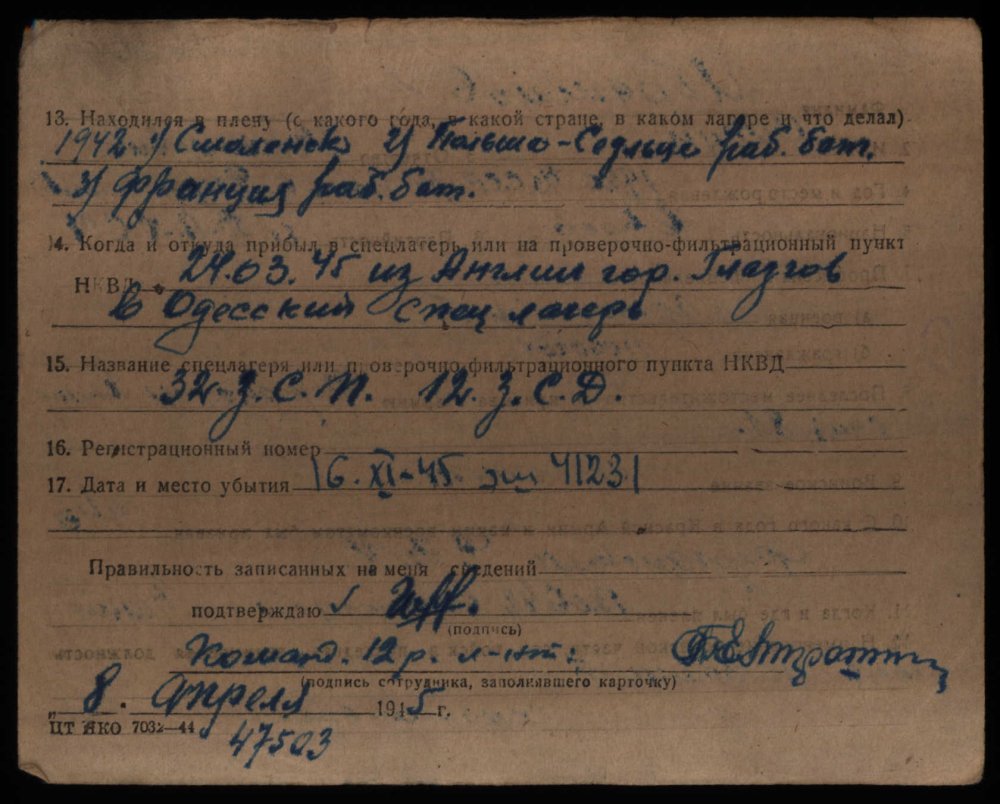 13. Находился в плену (с какого года, в какой стране, в каком лагере и что делал)
1942 1) Смоленск 2) Польша-Седльце раб. бат.
3) Франция раб. бат.
14. Когда и откуда прибыл в спецлагерь или на проверочно-фильтрационный пункт
НКВД 24.03.45 из Англии гор. Глазгов
в Одесский спец лагерь
15. Название спецлагеря или проверочно-фильтрационного пункта НКВД
32 з.с.п. 12 з.с.д.
16. Регистрационный номер
17. Дата и место убытия 16.XI-45. эш 41231
Правильность записанных на меня сведений
подтверждаю
(подпись)
Команд. 12 р. л-нт:
(подпись сотрудника, заполнявшего карточку)
„ 8. апреля 1945 г.
ЦТ НКО 7032—44
47503